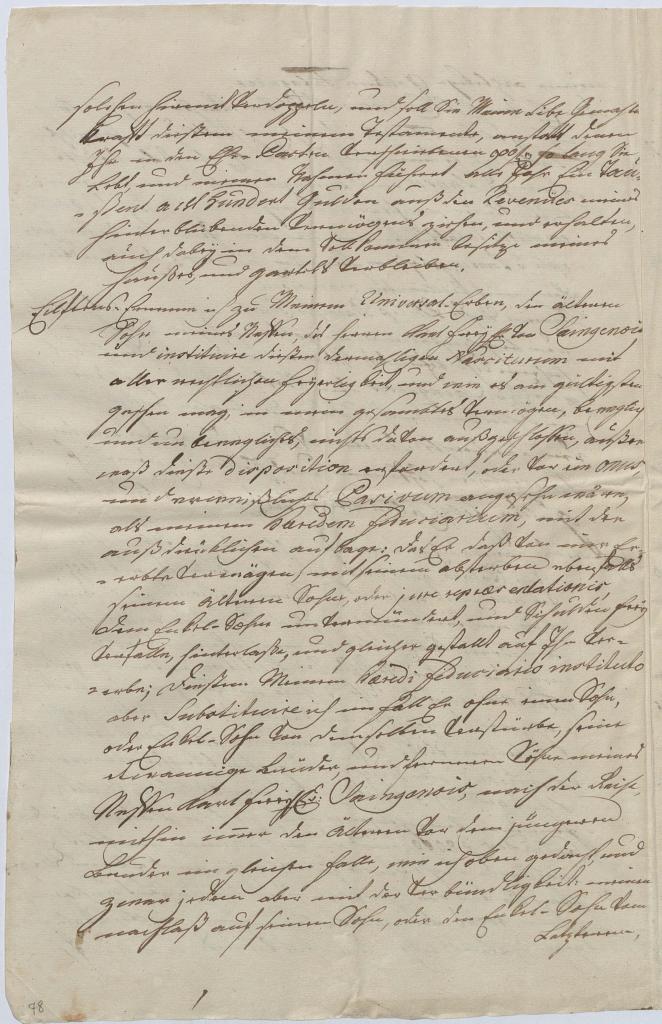 solchen hiemit verdoppeln, und soll Sie Meine Liebe Gemahlin
Krafft dießem meinem Testamente, anstatt denen
Ihr in den Ehe-Pacten verschriebenen so lang Sie
Lebt, und meinen Nahmen führet alle Jahr Ein Tau-
-ßent acht hundert Gulden auß den Revenües meines
hinterbleibenden Vermögens ziehen, und erhalten,
auch dabey in dem vollkommenen besitze meines
Haußes, und gartens verbleiben.
Eilftens. Ernenne ich zu Meinem Universal-Erben, den älteren
Sohn meines Neffen, des Herrn Karl Freyh: von Saingenois
und instituire dießen dermahligen Nasciturum mit
aller rechtlichen feyerligkeit, und wie es am gültigsten
geschehen mag, in mein gesambtes Vermögen, beweglich
und unbewegliches, nichts davon außgeschloßen, außer
waß dieße disposition erfordert, oder vor ein onus,
und Passivum angesehen wäre,
als meinem Haeredem fiduciarium, mit der
außdrücklichen auflage: daß Er daß von mir Er-
-erbte Vermögen mit seinem absterben ebenfalls
seinem älteren Sohne, oder jure repraesentationis,
dem Enkel-Sohne unvermindert, und Schulden frey
verfalle, hinterlaße, und gleicher gestallt auf Ihn ver-
-erbe; dießem Meinem Haeredi fiduciario instituto
aber Substituire ich im fall Er ohne einen Sohn,
oder Enkel-Sohn von demselben verstürbe, seine
Brüder und fernere Söhne meines
Neffen Karl Freyh: Saingenois, nach der Reihe,
mithin immer den älteren vor dem jüngeren
Bruder im gleichen falle, wie ich oben gedacht, und
zwar jedem aber mit der verbündligkeit: meinen
nachlaß auf seinen Sohn, oder den Enkel-Sohn vom
Letzteren,
78